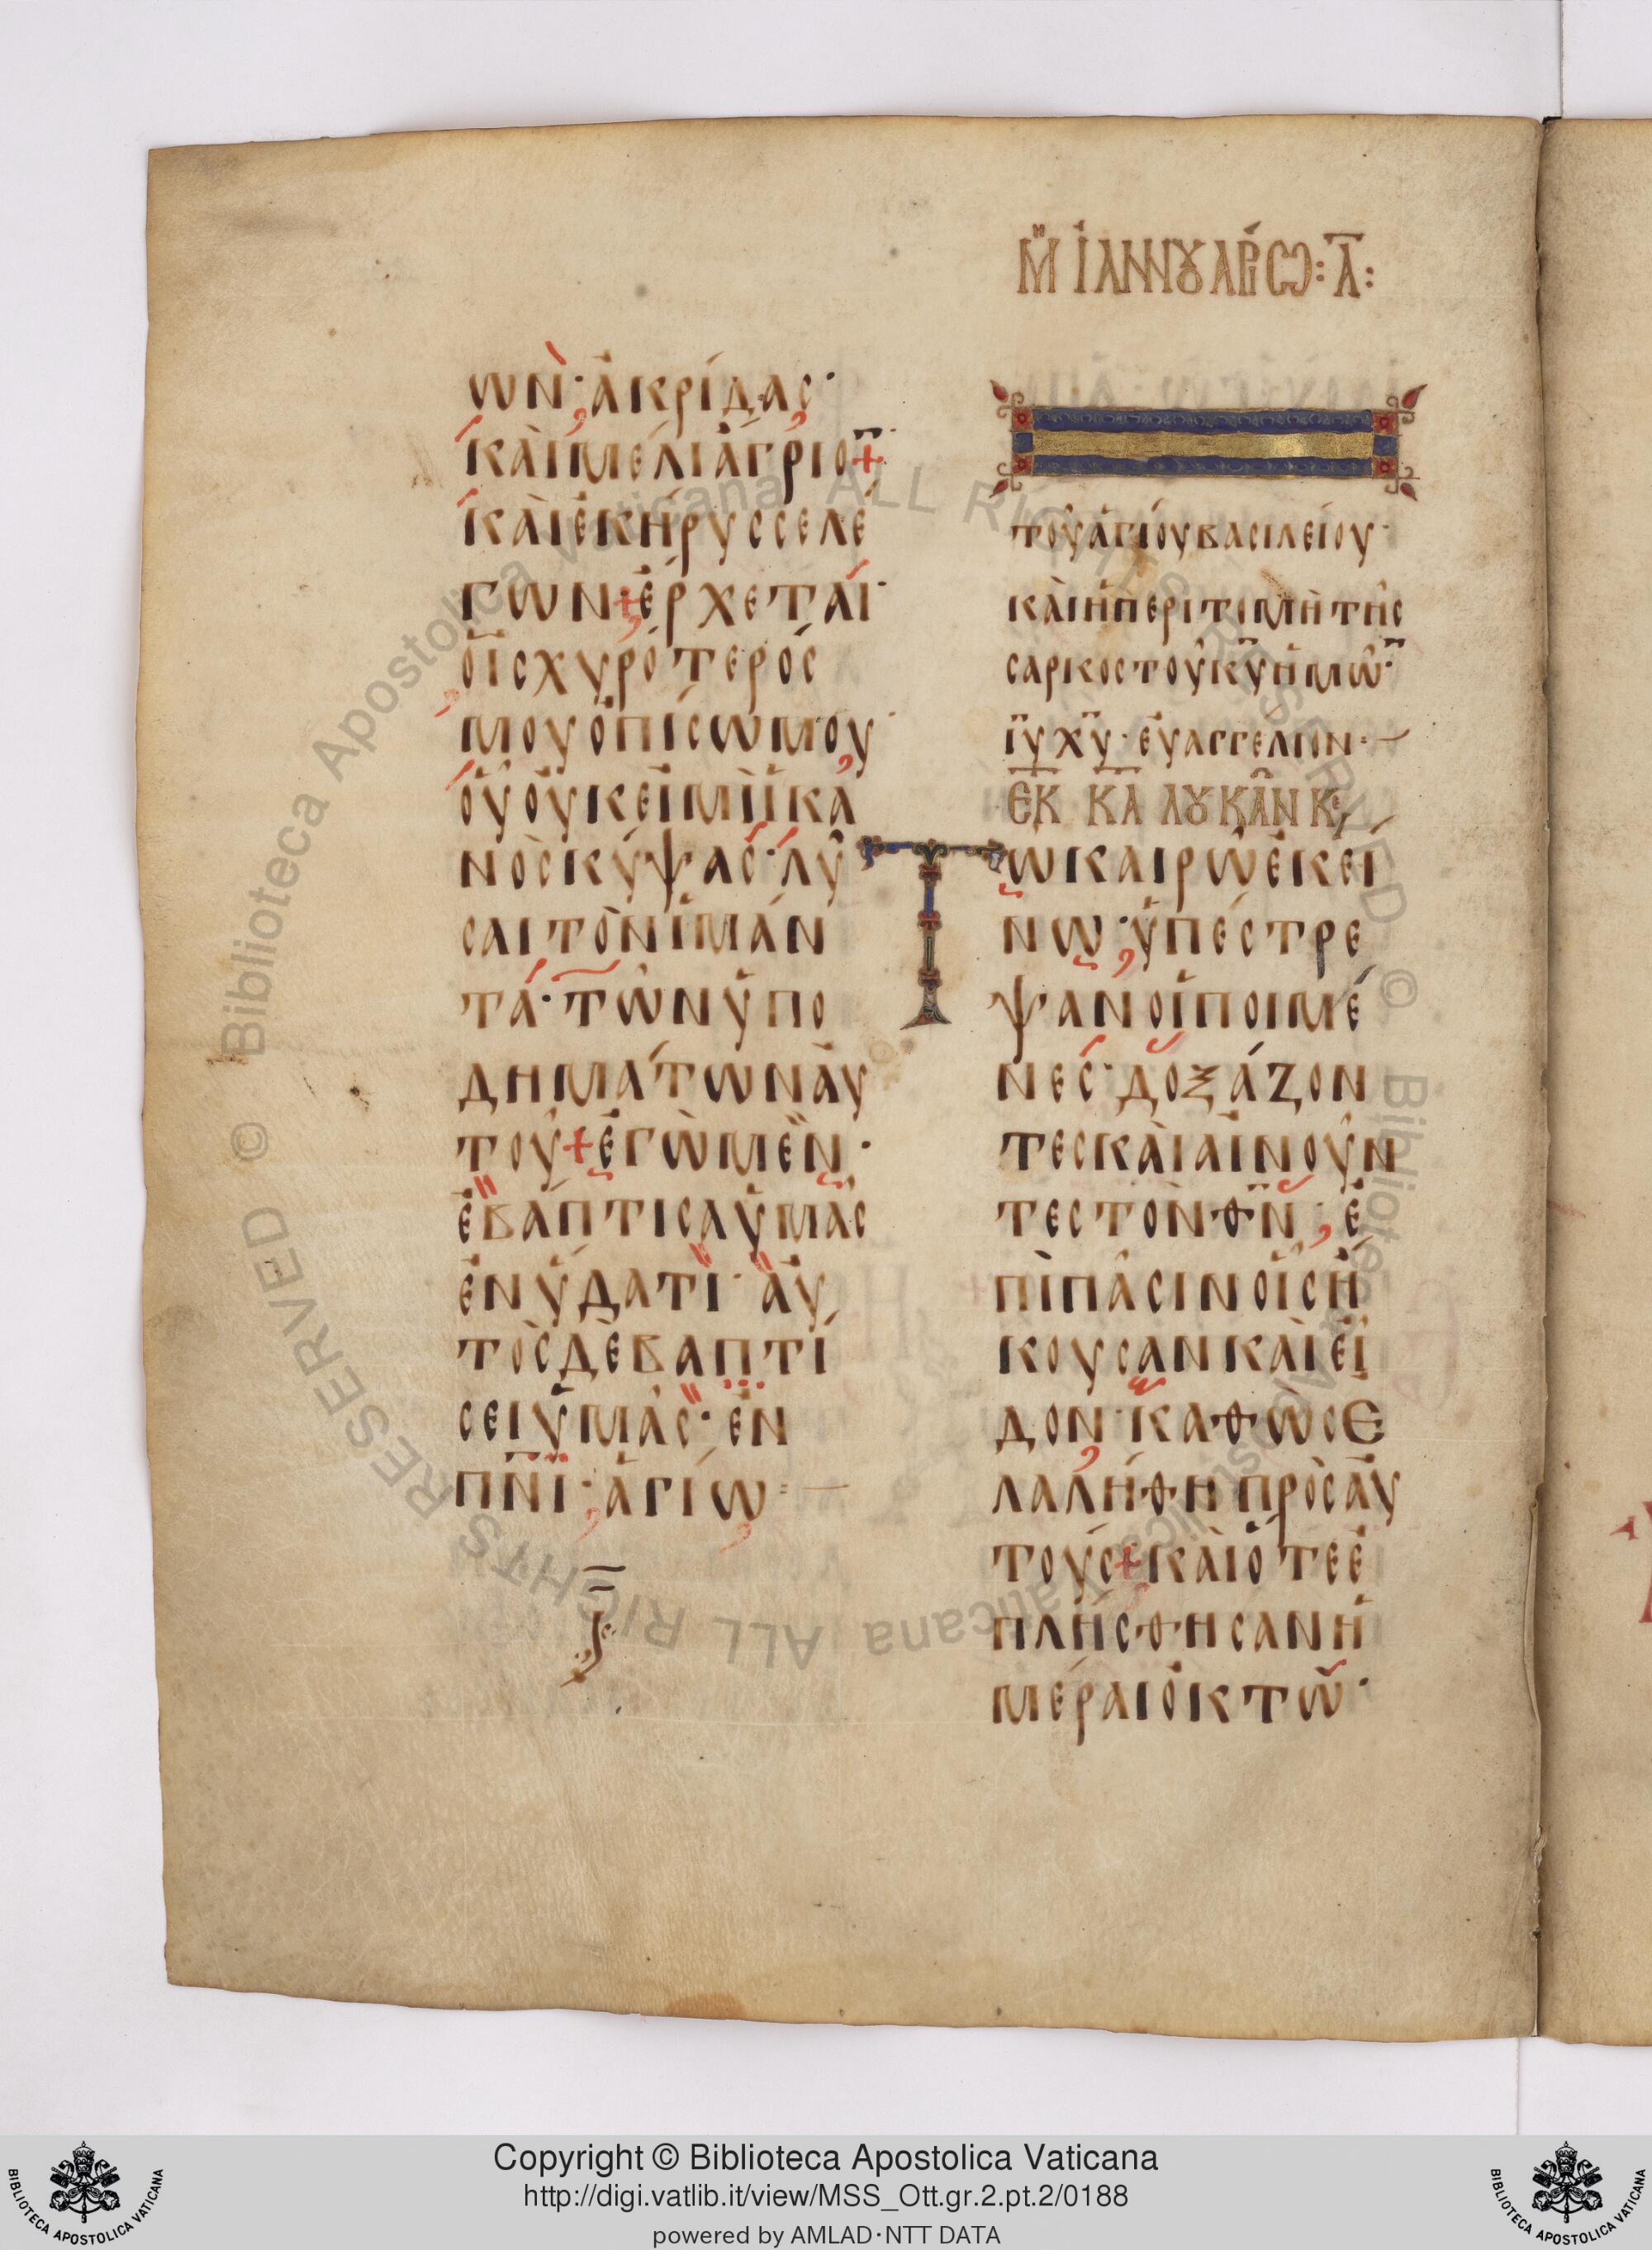 Μ ἸΑΝΝΟΥΑΡΙΩ: Α:
ων· ἀκρίδας·
καὶ μέλι ἄγριο̅
καὶ ἐκήρυσσε λέ
γων· ἔρχεται·
ὁ ἰσχυρότερός
μου ὀπίσω μου·
οὗ οὐκ εἰμὶ ἱκα
νὸς κύψας· λῦ
σαι τὸν ἱμάν
τα· τῶν ὑπο
δημάτων αὐ
τοῦ ἐγὼ μὲν·
ἐβάπτισα ὑμᾶς
ἐν ὕδατι· αὐ
τὸς δὲ βαπτί
σει ὑμᾶς· ἐν
πν̅ι· ἁγίω
τοῦ ἁγίου βασιλείου·
καὶ ἡ περιτομὴ τῆς
σαρκος τοῦ κ̅υ ἡμῶ̅·
ι̅υ χ̅υ· εὐαγγέλιον·
ΕΚ ΚΑ ΛΟΥΚΑΝ Κ
Τω καιρῶ ἐκεί
νω· ὑπέστρε
ψαν οἱ ποιμέ
νες· δοξάζον
τες καὶ αἰνοῦν
τες τὸν θ̅ν· ἐ
πὶ πᾶσιν οἷς ἤ
κουσαν καὶ εἶ
δον· καθὼς ἐ
λαλήθη πρὸς αὐ
τούς καὶ ὅτε ἐ
πλήσθησαν ἡ
μέραι ὀκτὼ·
© Biblioteca Apostolica Vaticana ALL RIGHTS RESERVED © Biblioteca Apostolica Vaticana ALL RIGHTS RESERVED
BIBLIOTECA APOSTOLICA VATICANA
Copyright © Biblioteca Apostolica Vaticana
http://digi.vatlib.it/view/MSS_Ott.gr.2.pt.2/0188
powered by AMLAD·NTT DATA
BIBLIOTECA APOSTOLICA VATICANA